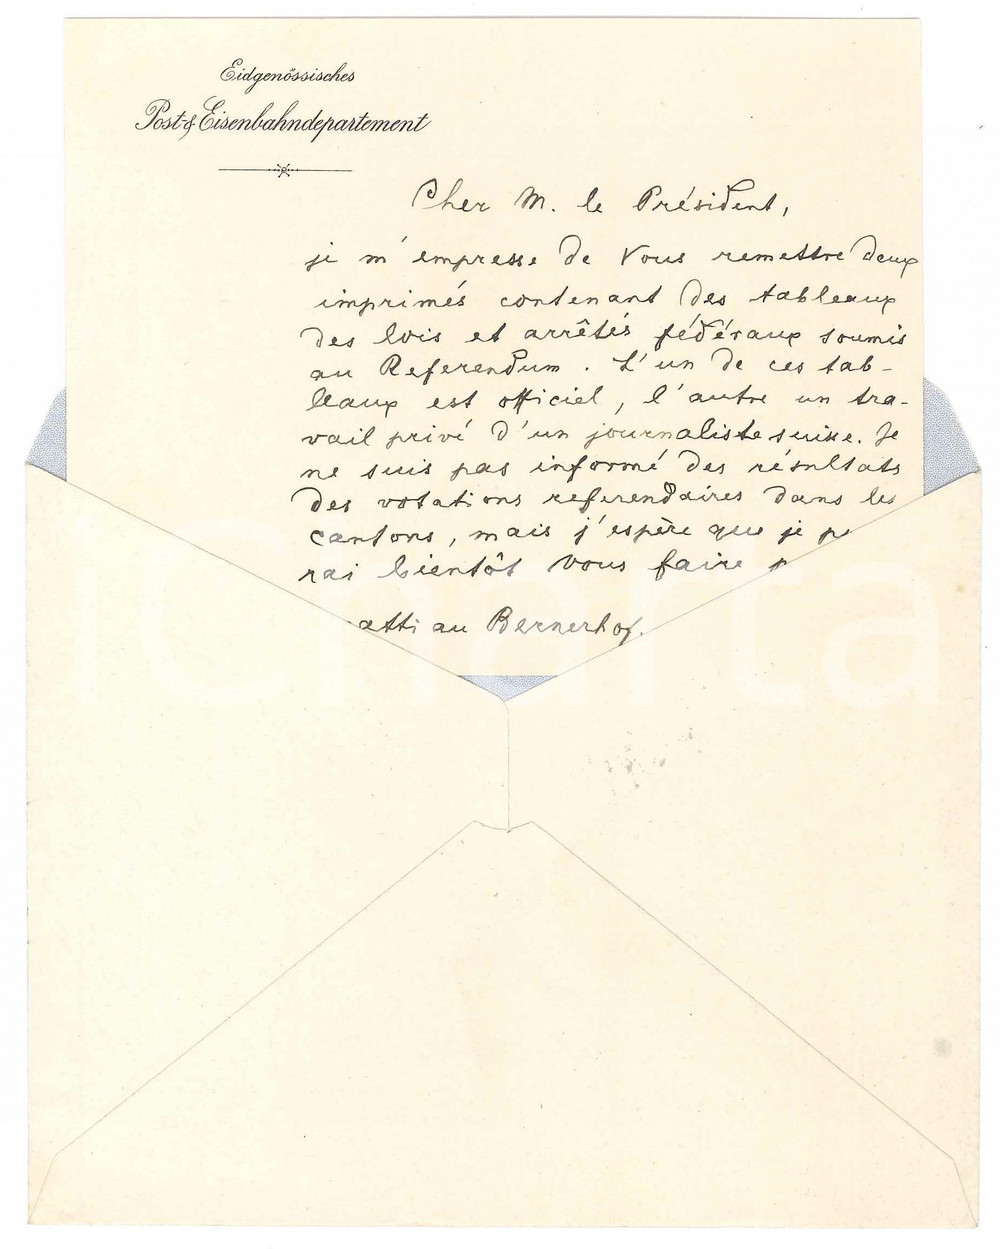 Eidgenössisches
Post- & Eisenbahndepartement
Cher M. le Président,
je m'empresse de Vous remettre deux
imprimés contenant des tableaux
des lois et arrêtés fédéraux soumis
au Referendum. L'un de ces tab-
leaux est officiel, l'autre un tra-
vail privé d'un journaliste suisse. Je
ne suis pas informé des résultats
des votations referendaires dans les
cantons, mais j'espère que je p
rai bientôt Vous faire p
atti au Bernerhof.